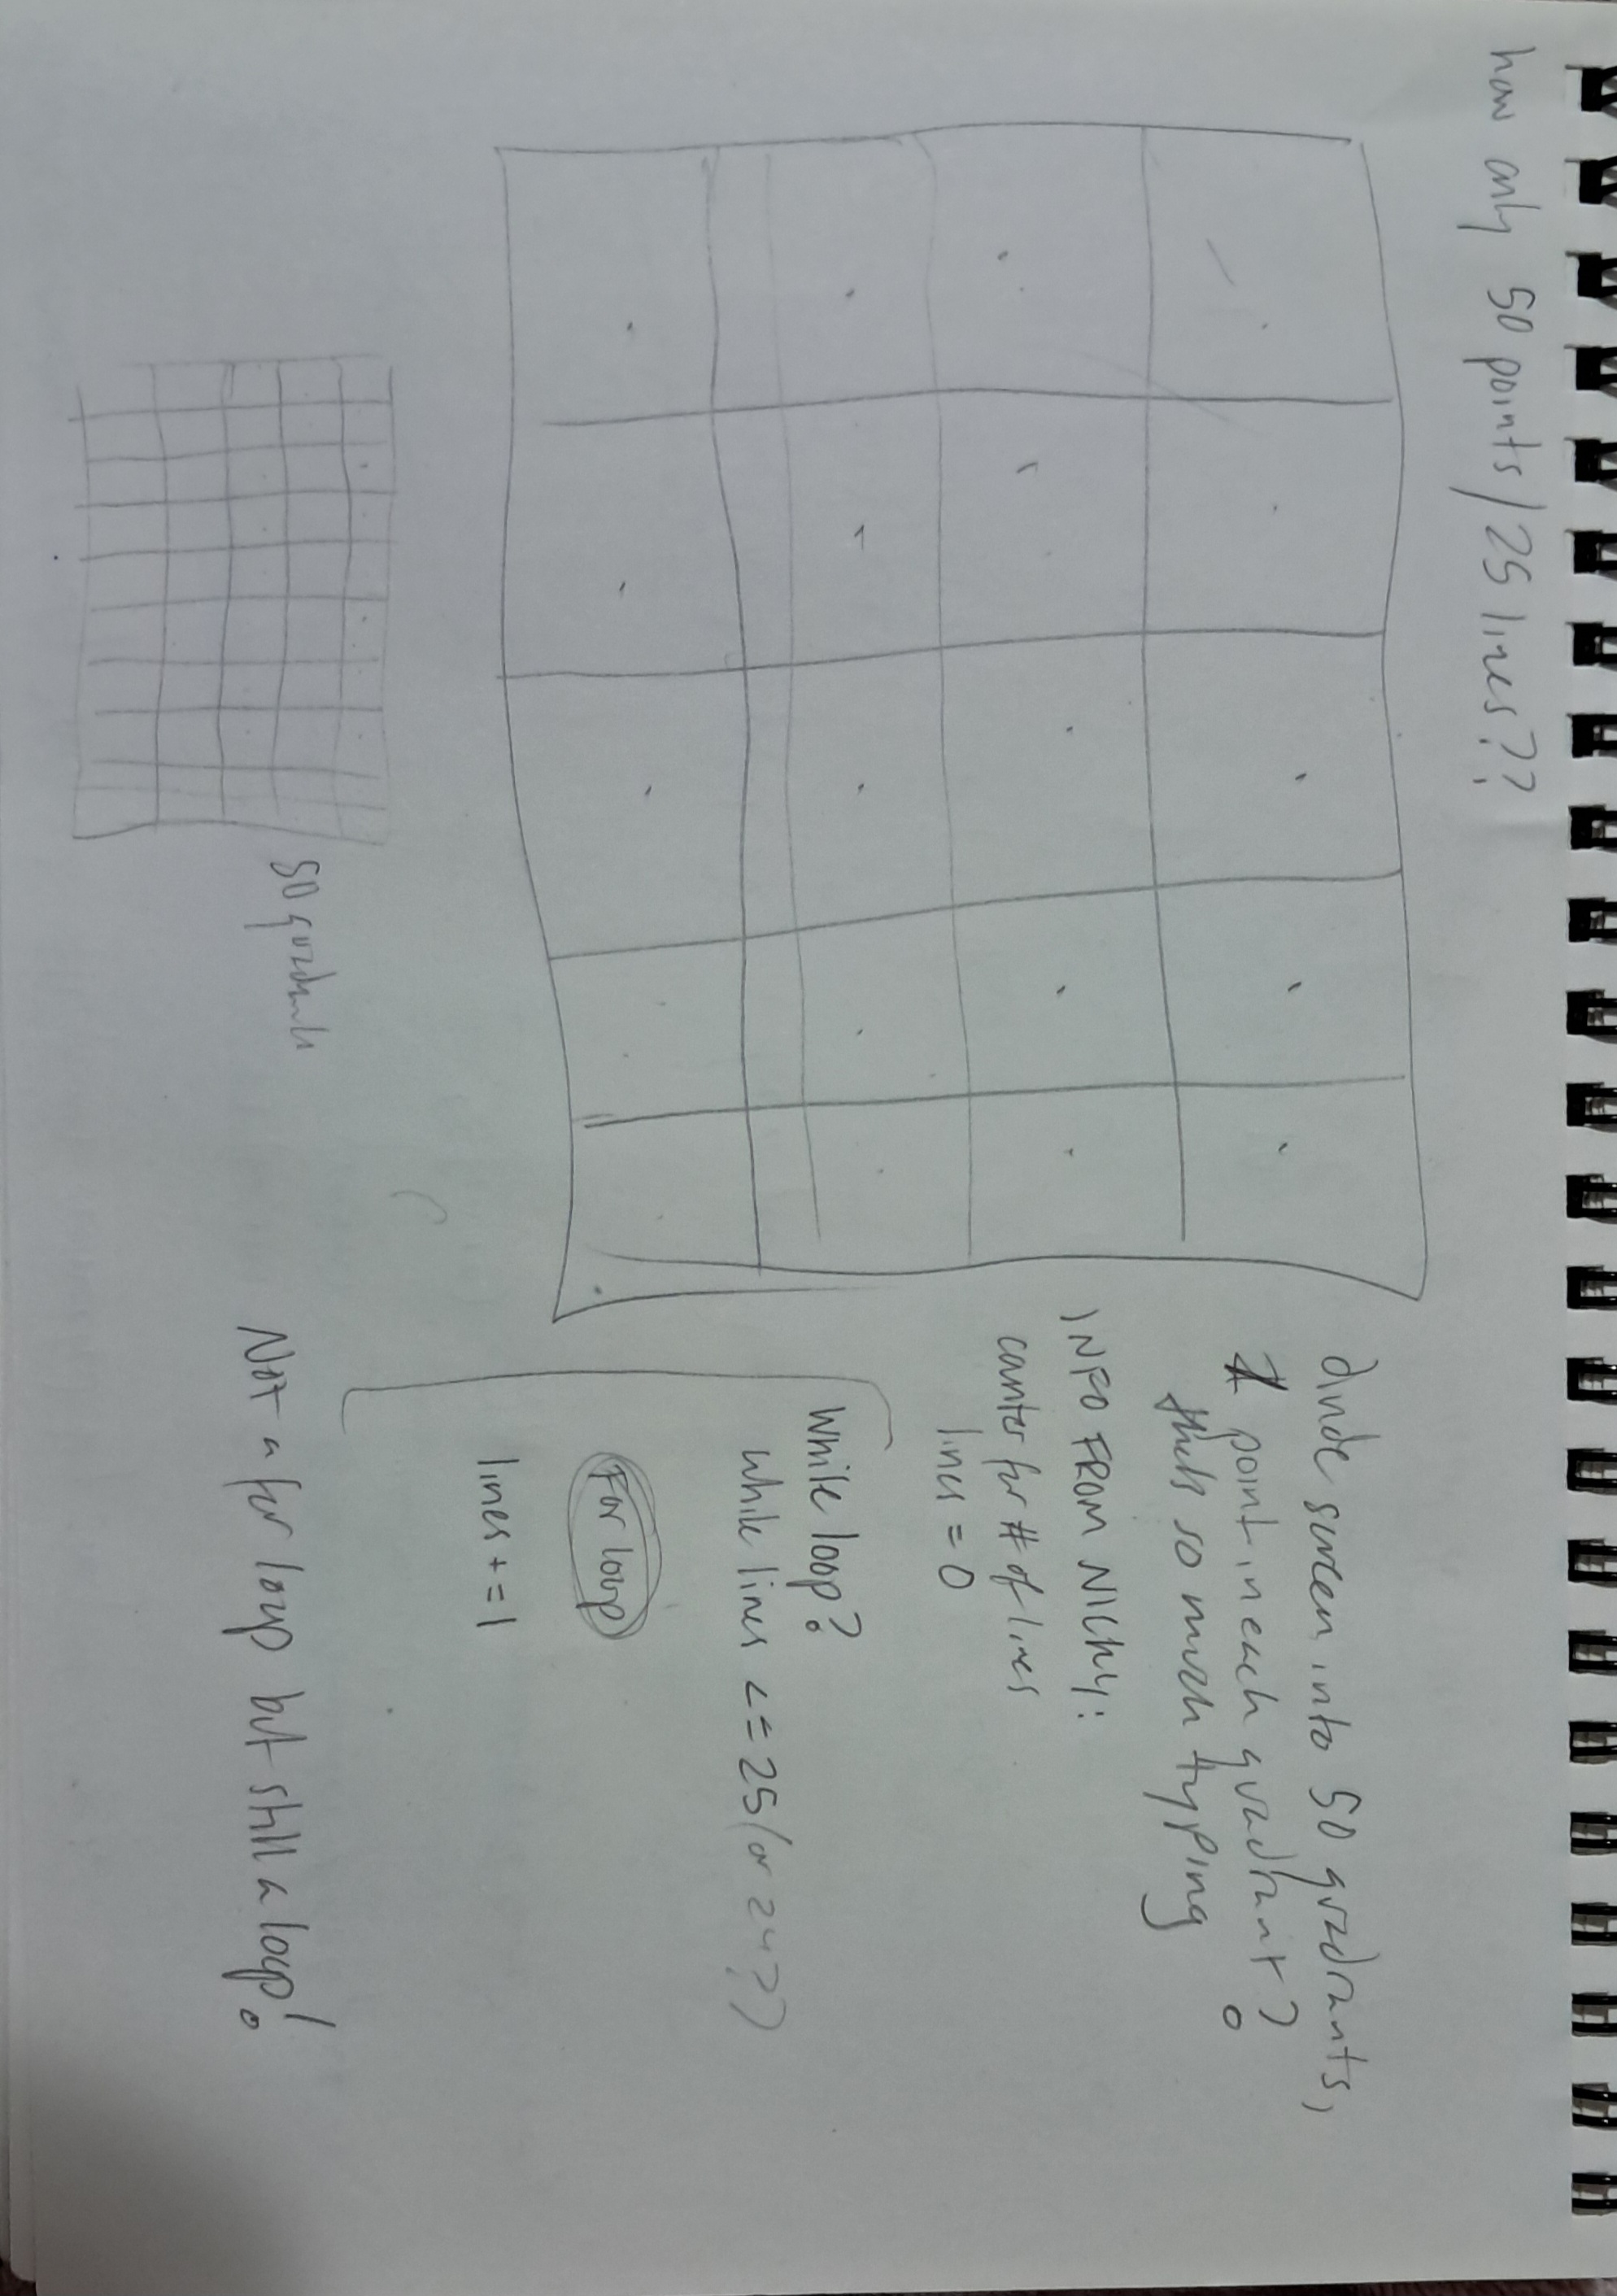 how only 50 points/25 lines??
divide screen into 50 quadrants,
1 point in each quadrant?
thats so much typing
INFO FROM NICHY:
counter for # of lines
lines = 0
While loop?
while lines <= 25 (or 24?)
For loop
lines += 1
Not a for loop but still a loop!
50 quadrants